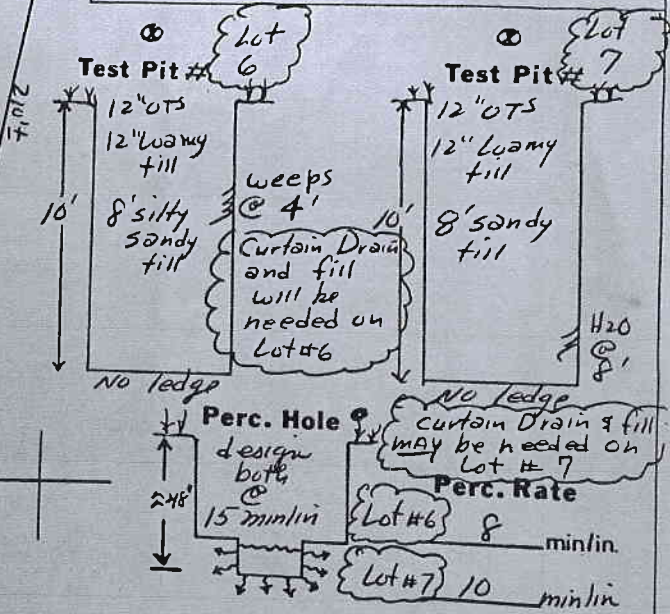 Lot
6
Test Pit #
12" OTS
12" Loamy
fill
8' silty
sandy
fill
10'
weeps
@ 4'
Curtain Drain
and fill
will be
needed on
Lot #6
No ledge
Lot
7
Test Pit #
12" OTS
12" Loamy
fill
8' sandy
fill
10'
H20
@
8'
No ledge
Curtain Drain & fill
MAY be needed on
Lot # 7
Perc. Hole
design
both
@
15 min/in
Perc. Rate
Lot #6 8 min/in.
Lot #7 10 min/in